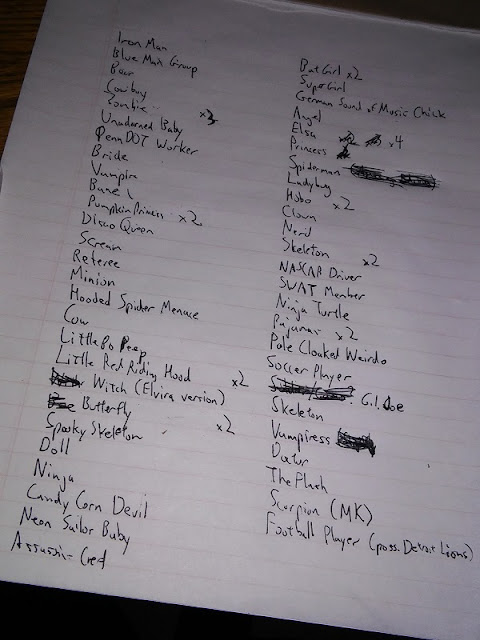 Iron Man
Blue Man Group
Bear
Cowboy
Zombie x3
Unadorned Baby
PennDOT Worker
Bride
Vampire
Pumpkin Princess x2
Disco Queen
Scream
Referee
Minion
Hooded Spider Menace
Cow
Little Bo Peep
Little Red Riding Hood
Witch (Elvira version) x2
Butterfly
Spooky Skeleton x2
Doll
Ninja
Candy Corn Devil
Neon Sailor Baby
Assassin Creed
BatGirl x2
SuperGirl
German Sound of Music Chick
Angel
Elsa x4
Princess
Spiderman
Ladybug
Hobo x2
Clown
Nerd
Skeleton x2
NASCAR Driver
SWAT Member
Ninja Turtle
Pajamas x2
Pale Cloaked Weirdo
Soccer Player
G.I. Joe
Skeleton
Vampiress
Doctor
The Flash
Scorpion (MK)
Football Player (poss. Detroit Lions)